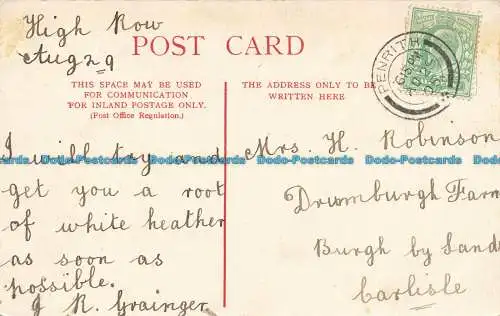 High Row
Aug 29
POST CARD
THIS SPACE MAY BE USED
FOR COMMUNICATION
FOR INLAND POSTAGE ONLY.
(Post Office Regulation.)
THE ADDRESS ONLY TO BE
WRITTEN HERE
PENRITH
I will try and
get you a root
of white heather
as soon as
possible.
J R. Grainger.
Mrs. H. Robinson
Drumburgh Farm
Burgh by Sands
Carlisle
Dodo-Postcards Dodo-Postcards Dodo-Postcards Dodo-Postcards